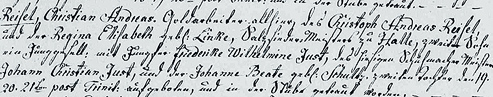 Reisel, Christian Andreas, Goldarbeiter allhier, des Christoph Andreas Reisel,
und der Regina Elisabeth gebl. Linke, Salzsieder Meisters zu Halle, zweiter Sohn
ein Junggesell: mit Jungfer Friederike Wilhelmine Just, des hiesigen Schuhmacher Meisters
Johann Christian Just, und der Johanne Beate gebl. Schultz, zweiter Tochter den 19.
20. 21ten post Trinit. aufgeboten, und in der Stube getraut worden.